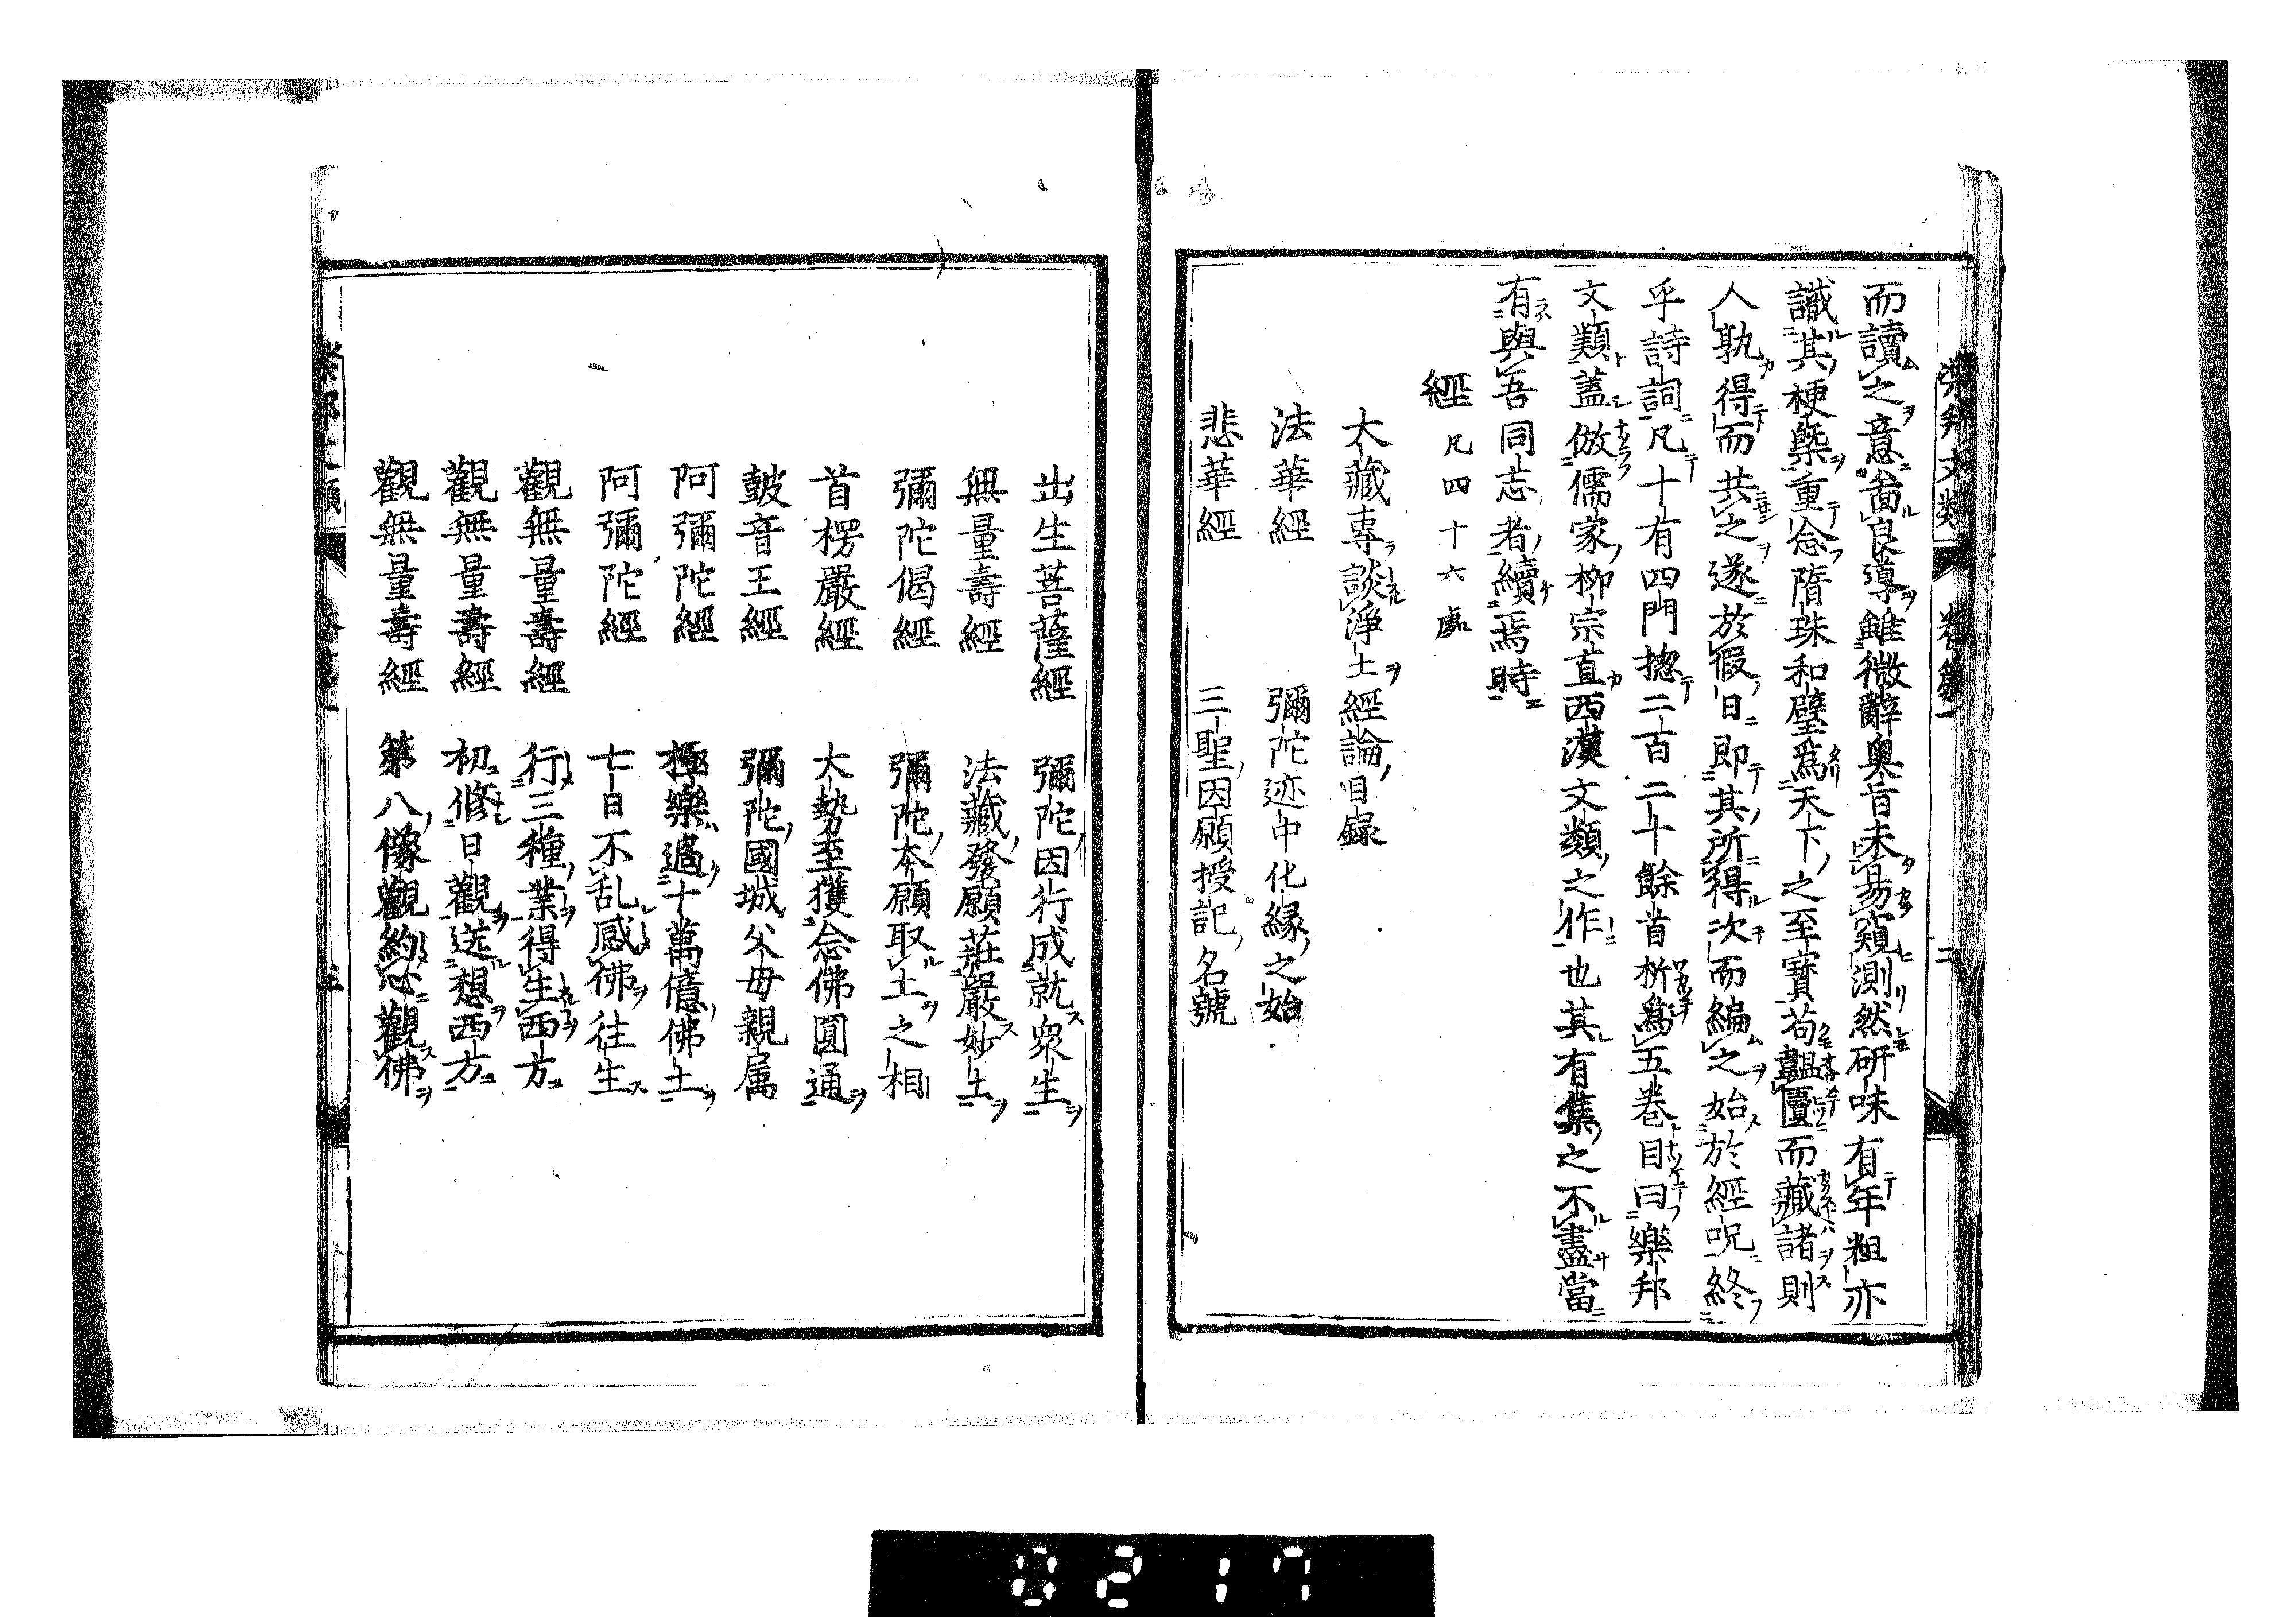 樂邦文類 卷第一 二
而讀之意啚良導雖微辭奥旨未易窺測然研味有年粗亦
識其梗槩重念隋珠和璧爲天下之至寳苟韞匵而藏諸則
人孰得而共之遂於假日即其所得次而編之始於經呪終
乎詩詞凡十有四門揔二百二十餘首析爲五巻目曰樂邦
文類蓋倣儒家栁宗直西漢文類之作也其有集之不盡當
有與吾同志者續焉時
經 凡四十六處
大藏專談淨土經論目録
法華經 彌陀迹中化縁之始
悲華經 三聖因願授記名號
出生菩薩經 彌陀因行成就衆生
無量壽經 法藏發願莊嚴妙土
彌陀偈經 彌陀本願取土之相
首楞嚴經 大勢至獲念佛圓通
鼓音王經 彌陀國城父母親属
阿彌陀經 極樂過十萬億佛土
阿彌陀經 七日不乱感佛往生
觀無量壽經 行三種業得生西方
觀無量壽經 初修日觀送想西方
觀無量壽經 第八像觀約心觀佛
0217